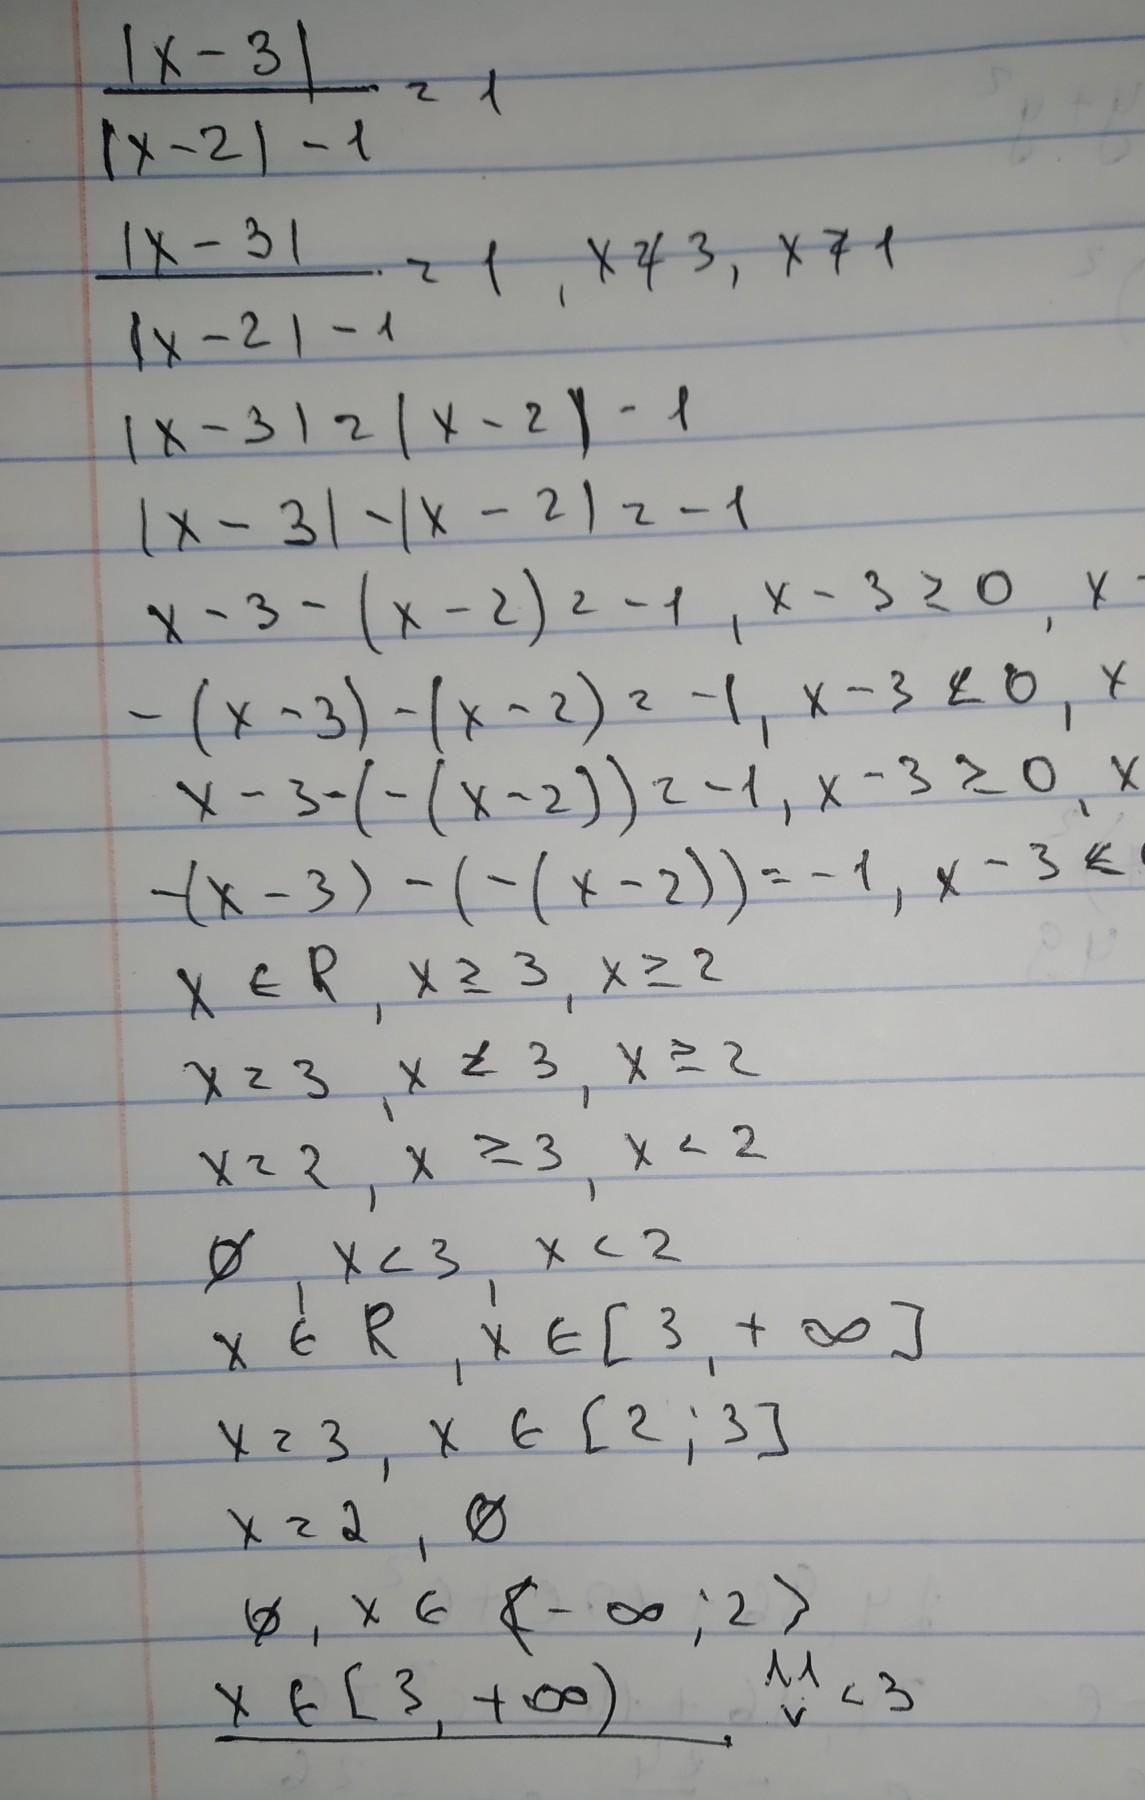 |x-3|
|x-2|-1 = 1
|x-3|
|x-2|-1 = 1, x≠3, x≠1
|x-3| = |x-2|-1
|x-3|-|x-2| = -1
x-3-(x-2) = -1, x-3≥0, x
-(x-3)-(x-2) = -1, x-3<0, x
x-3-(-(x-2)) = -1, x-3≥0, x
-(x-3)-(-(x-2)) = -1, x-3<
x∈R, x≥3, x≥2
x=3, x<3, x≥2
x=2, x≥3, x<2
∅, x<3, x<2
x∈R, x∈[3,+∞]
x=3, x∈[2;3]
x=2, ∅
∅, x∈<-∞;2>
x∈[3,+∞) <3